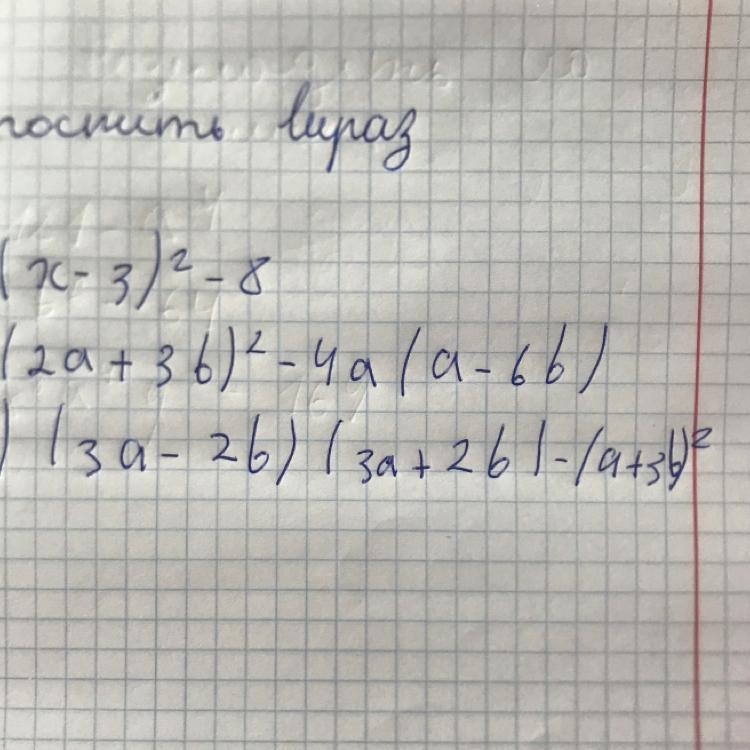 простить вираз
(x-3)²-8
(2a+3b)²-4a(a-6b)
) (3a-2b)(3a+2b)-(a+3b)²